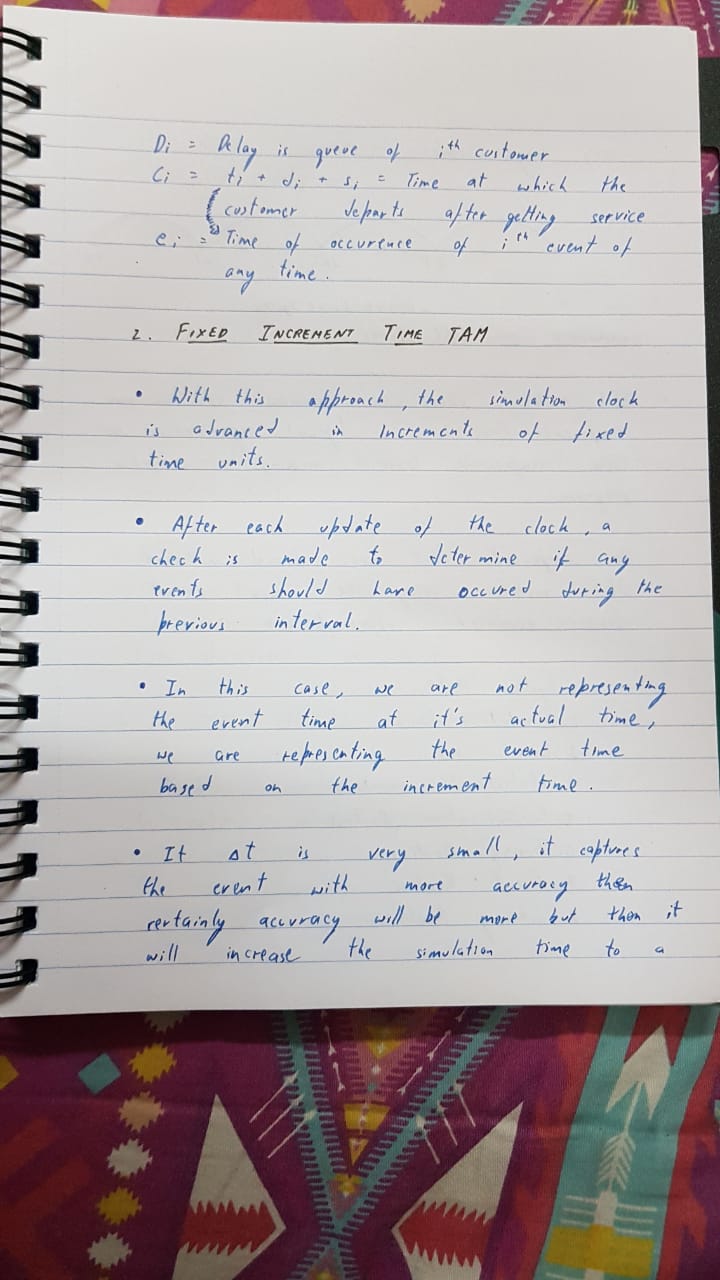 Di = Delay is queue of ith customer
Ci = ti + di + si = Time at which the
customer departs after getting service
ei = Time of occurence of ith event of
any time.
2. FIXED INCREMENT TIME TAM
• With this approach, the simulation clock
is advanced in Increments of fixed
time units.
• After each update of the clock, a
check is made to determine if any
events should have occured during the
previous interval.
• In this case, we are not representing
the event time at it's actual time,
we are representing the event time
based on the increment time.
• If Δt is very small, it captures
the event with more accuracy then
certainly accuracy will be more but then it
will increase the simulation time to a